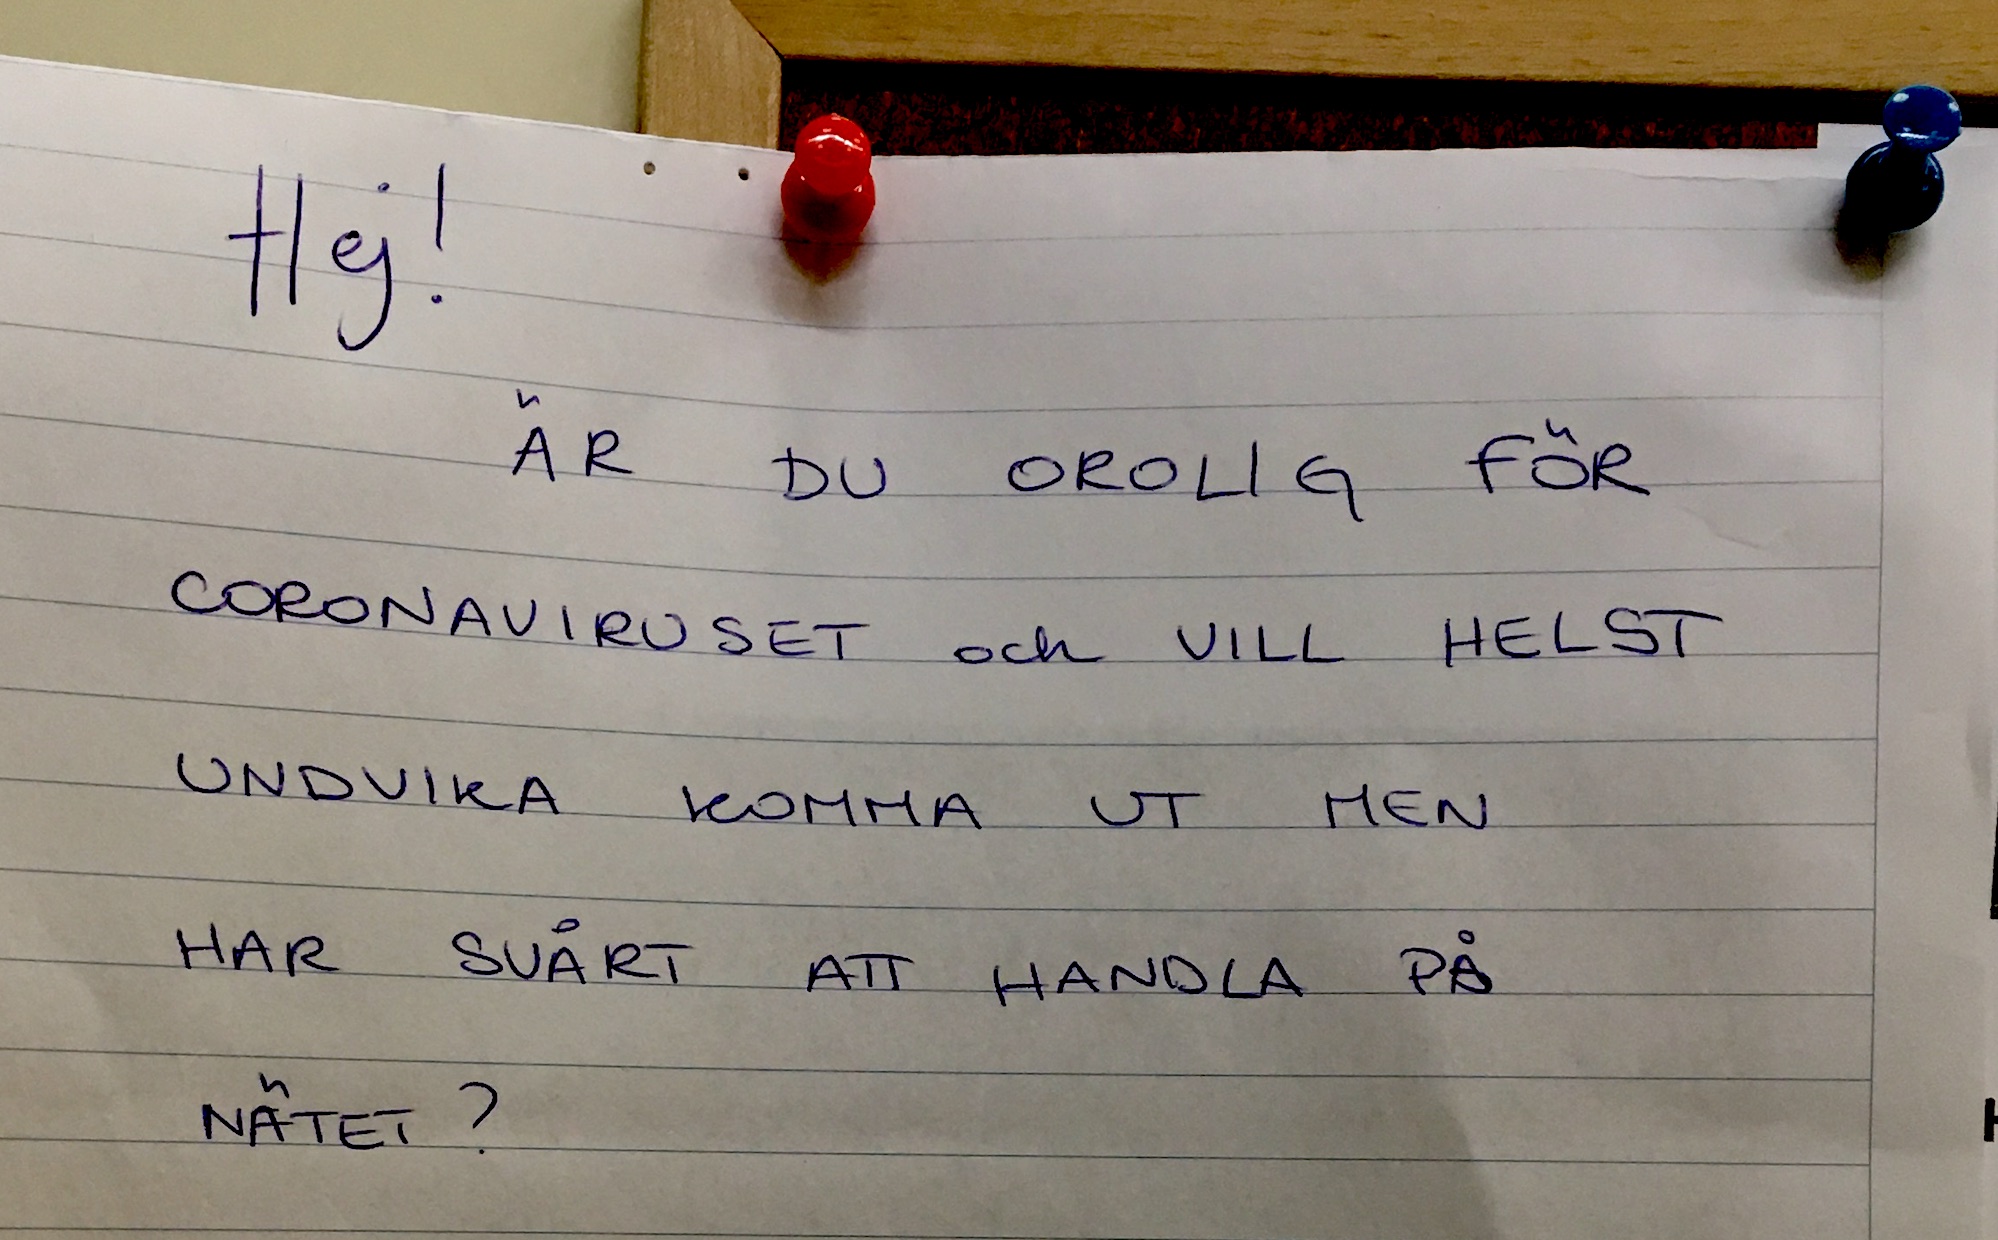 Hej!
ÄR DU OROLIG FÖR
CORONAVIRUSET och VILL HELST
UNDVIKA KOMMA UT MEN
HAR SVÅRT ATT HANDLA PÅ
NÄTET?